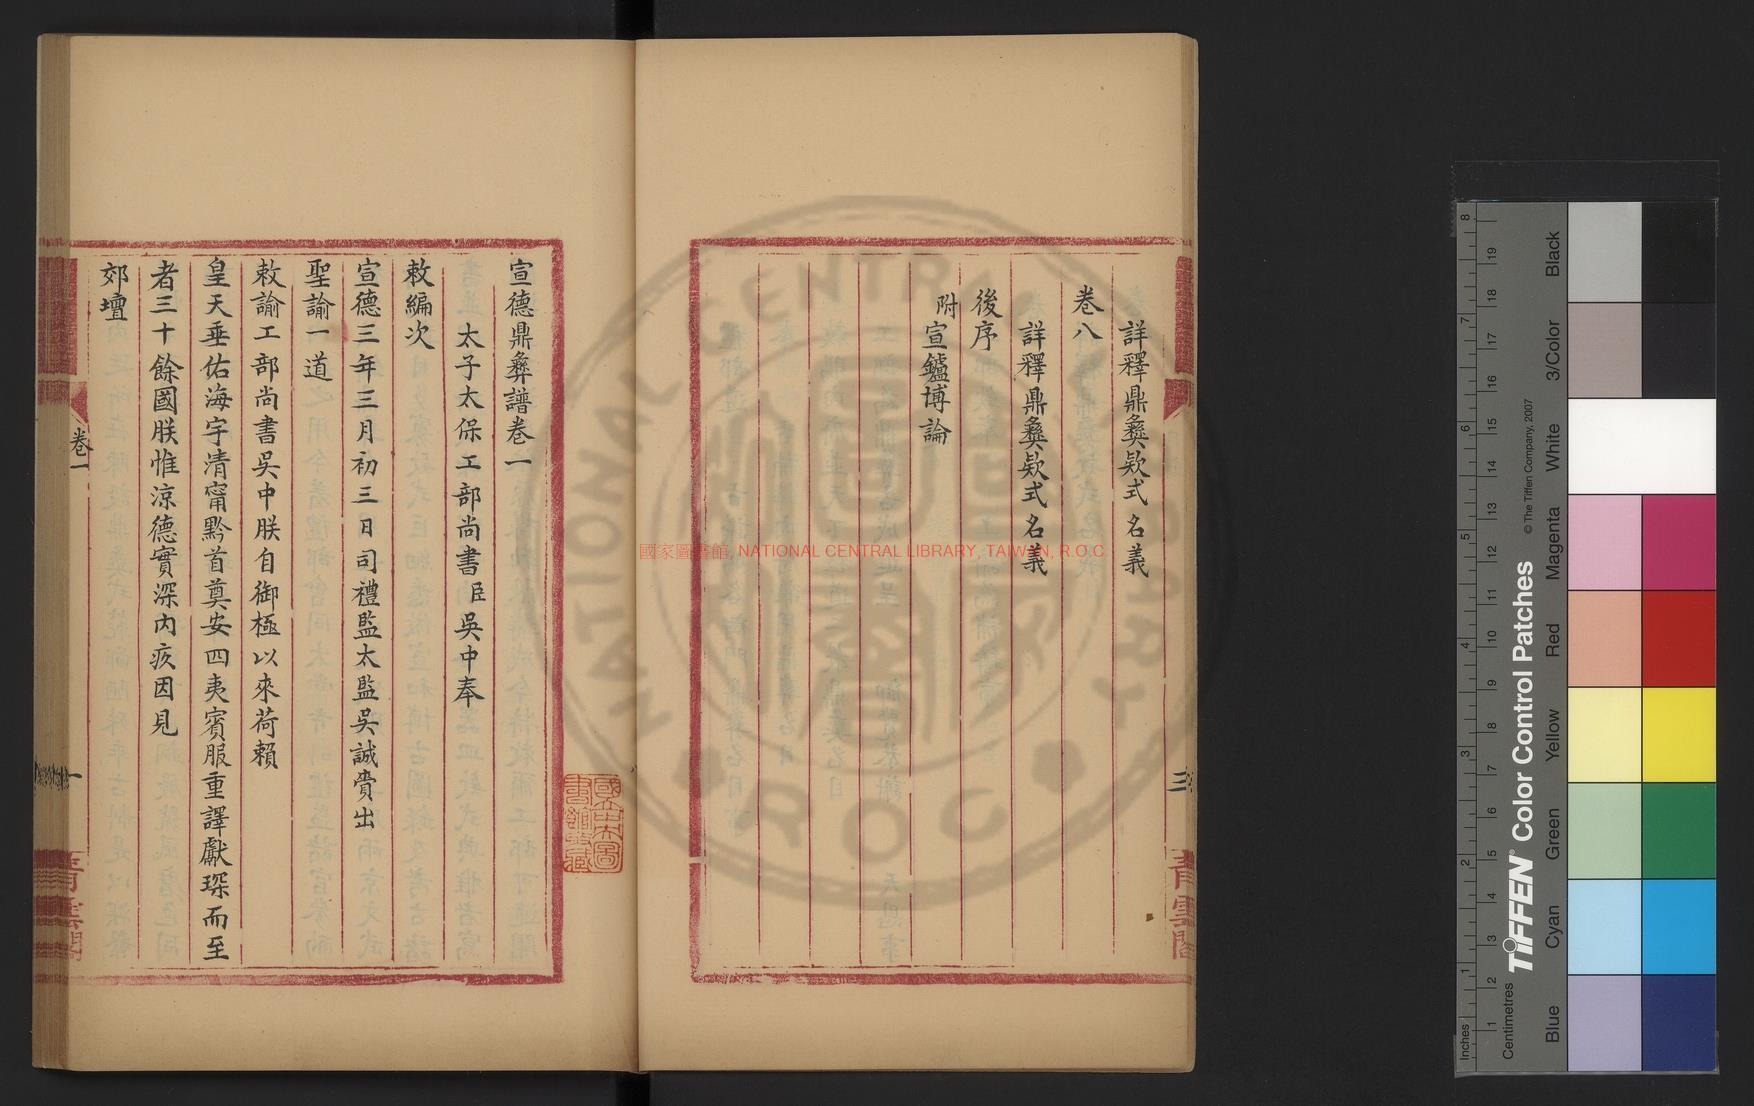 詳釋鼎彝欵式名義
卷八
詳釋鼎彝欵式名義
後序
附宣鑪博論
三
青雲閣
宣德鼎彝譜卷一
太子太保工部尚書臣吳中奉
敕編次
宣德三年三月初三日司禮監太監吳誠賫出
聖諭一道
敕諭工部尚書吳中朕自御極以來荷賴
皇天垂佑海宇清甯黔首奠安四夷賓服重譯獻琛而至
者三十餘國朕惟涼德實深內疚因見
郊壇
卷一
一
青雲閣
國立中央圖書館收藏
國家圖書館, NATIONAL CENTRAL LIBRARY, TAIWAN, R.O.C
NATIONAL CENTRAL LIBRARY
R.O.C
TIFFEN® Color Control Patches
© The Tiffen Company, 2007
Inches 1 2 3 4 5 6 7 8
Centimetres 1 2 3 4 5 6 7 8 9 10 11 12 13 14 15 16 17 18 19
Blue Cyan Green Yellow Red Magenta White 3/Color Black